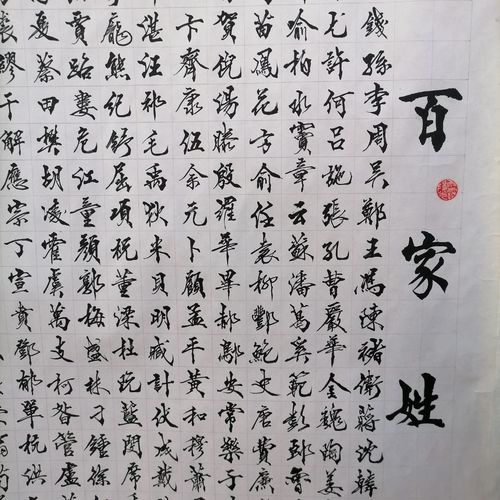 百家姓
錢孫李周吳鄭王馮陳褚衛蔣沈韓
尤許何呂施張孔曹嚴華金魏陶姜
喻柏水竇章雲蘇潘葛奚範彭郎魯
苗鳳花方俞任袁柳酆鮑史唐費廉
賀倪湯滕殷羅華畢郝鄔安常樂于
卞齊康伍余元卜顧孟平黃和穆蕭
湛汪祁毛禹狄米貝明臧計伏成戴
龐熊紀舒屈項祝董梁杜阮藍閔席
賈路婁危江童顏郭梅盛林刁鍾徐
夏蔡田樊胡凌霍虞萬支柯昝管盧
裘繆干解應宗丁宣賁鄧郁單杭洪